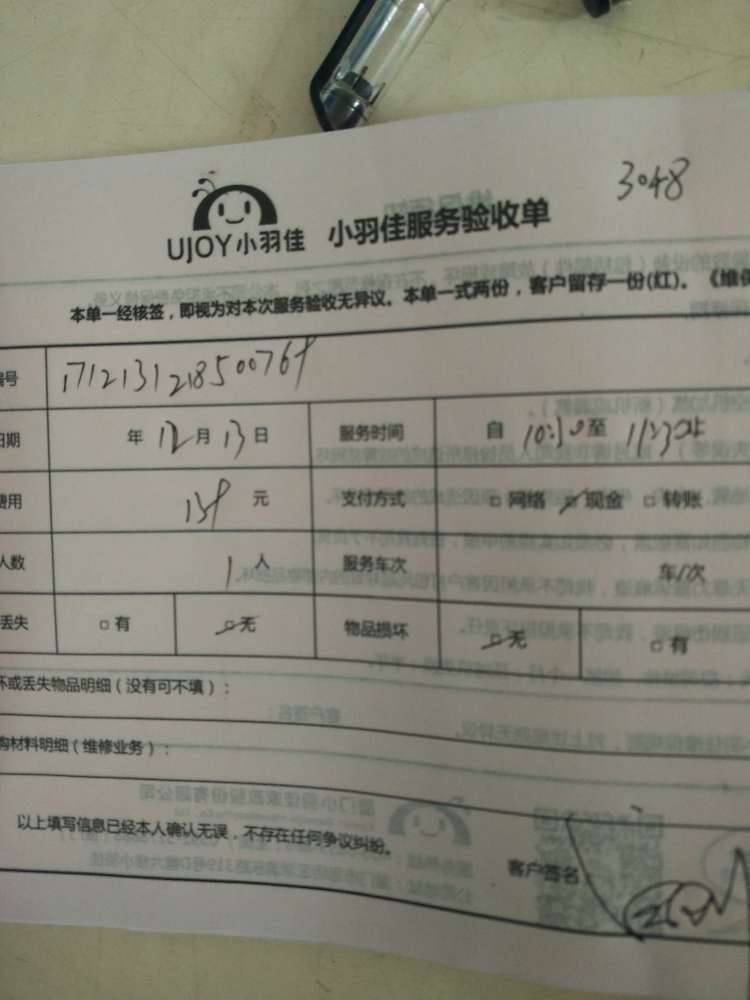 3048
UJOY小羽佳 小羽佳服务验收单
本单一经核签，即视为对本次服务验收无异议。本单一式两份，客户留存一份(红)。《维保
编号 171213121850076
日期 年12月13日 服务时间 自10:30至11:30
费用 159元 支付方式 □网络 ☑现金 □转账
人数 1人 服务车次 车/次
丢失 □有 ☑无 物品损坏 ☑无 □有
坏或丢失物品明细（没有可不填）：
购材料明细（维修业务）：
以上填写信息已经本人确认无误，不存在任何争议纠纷。
客户签名：